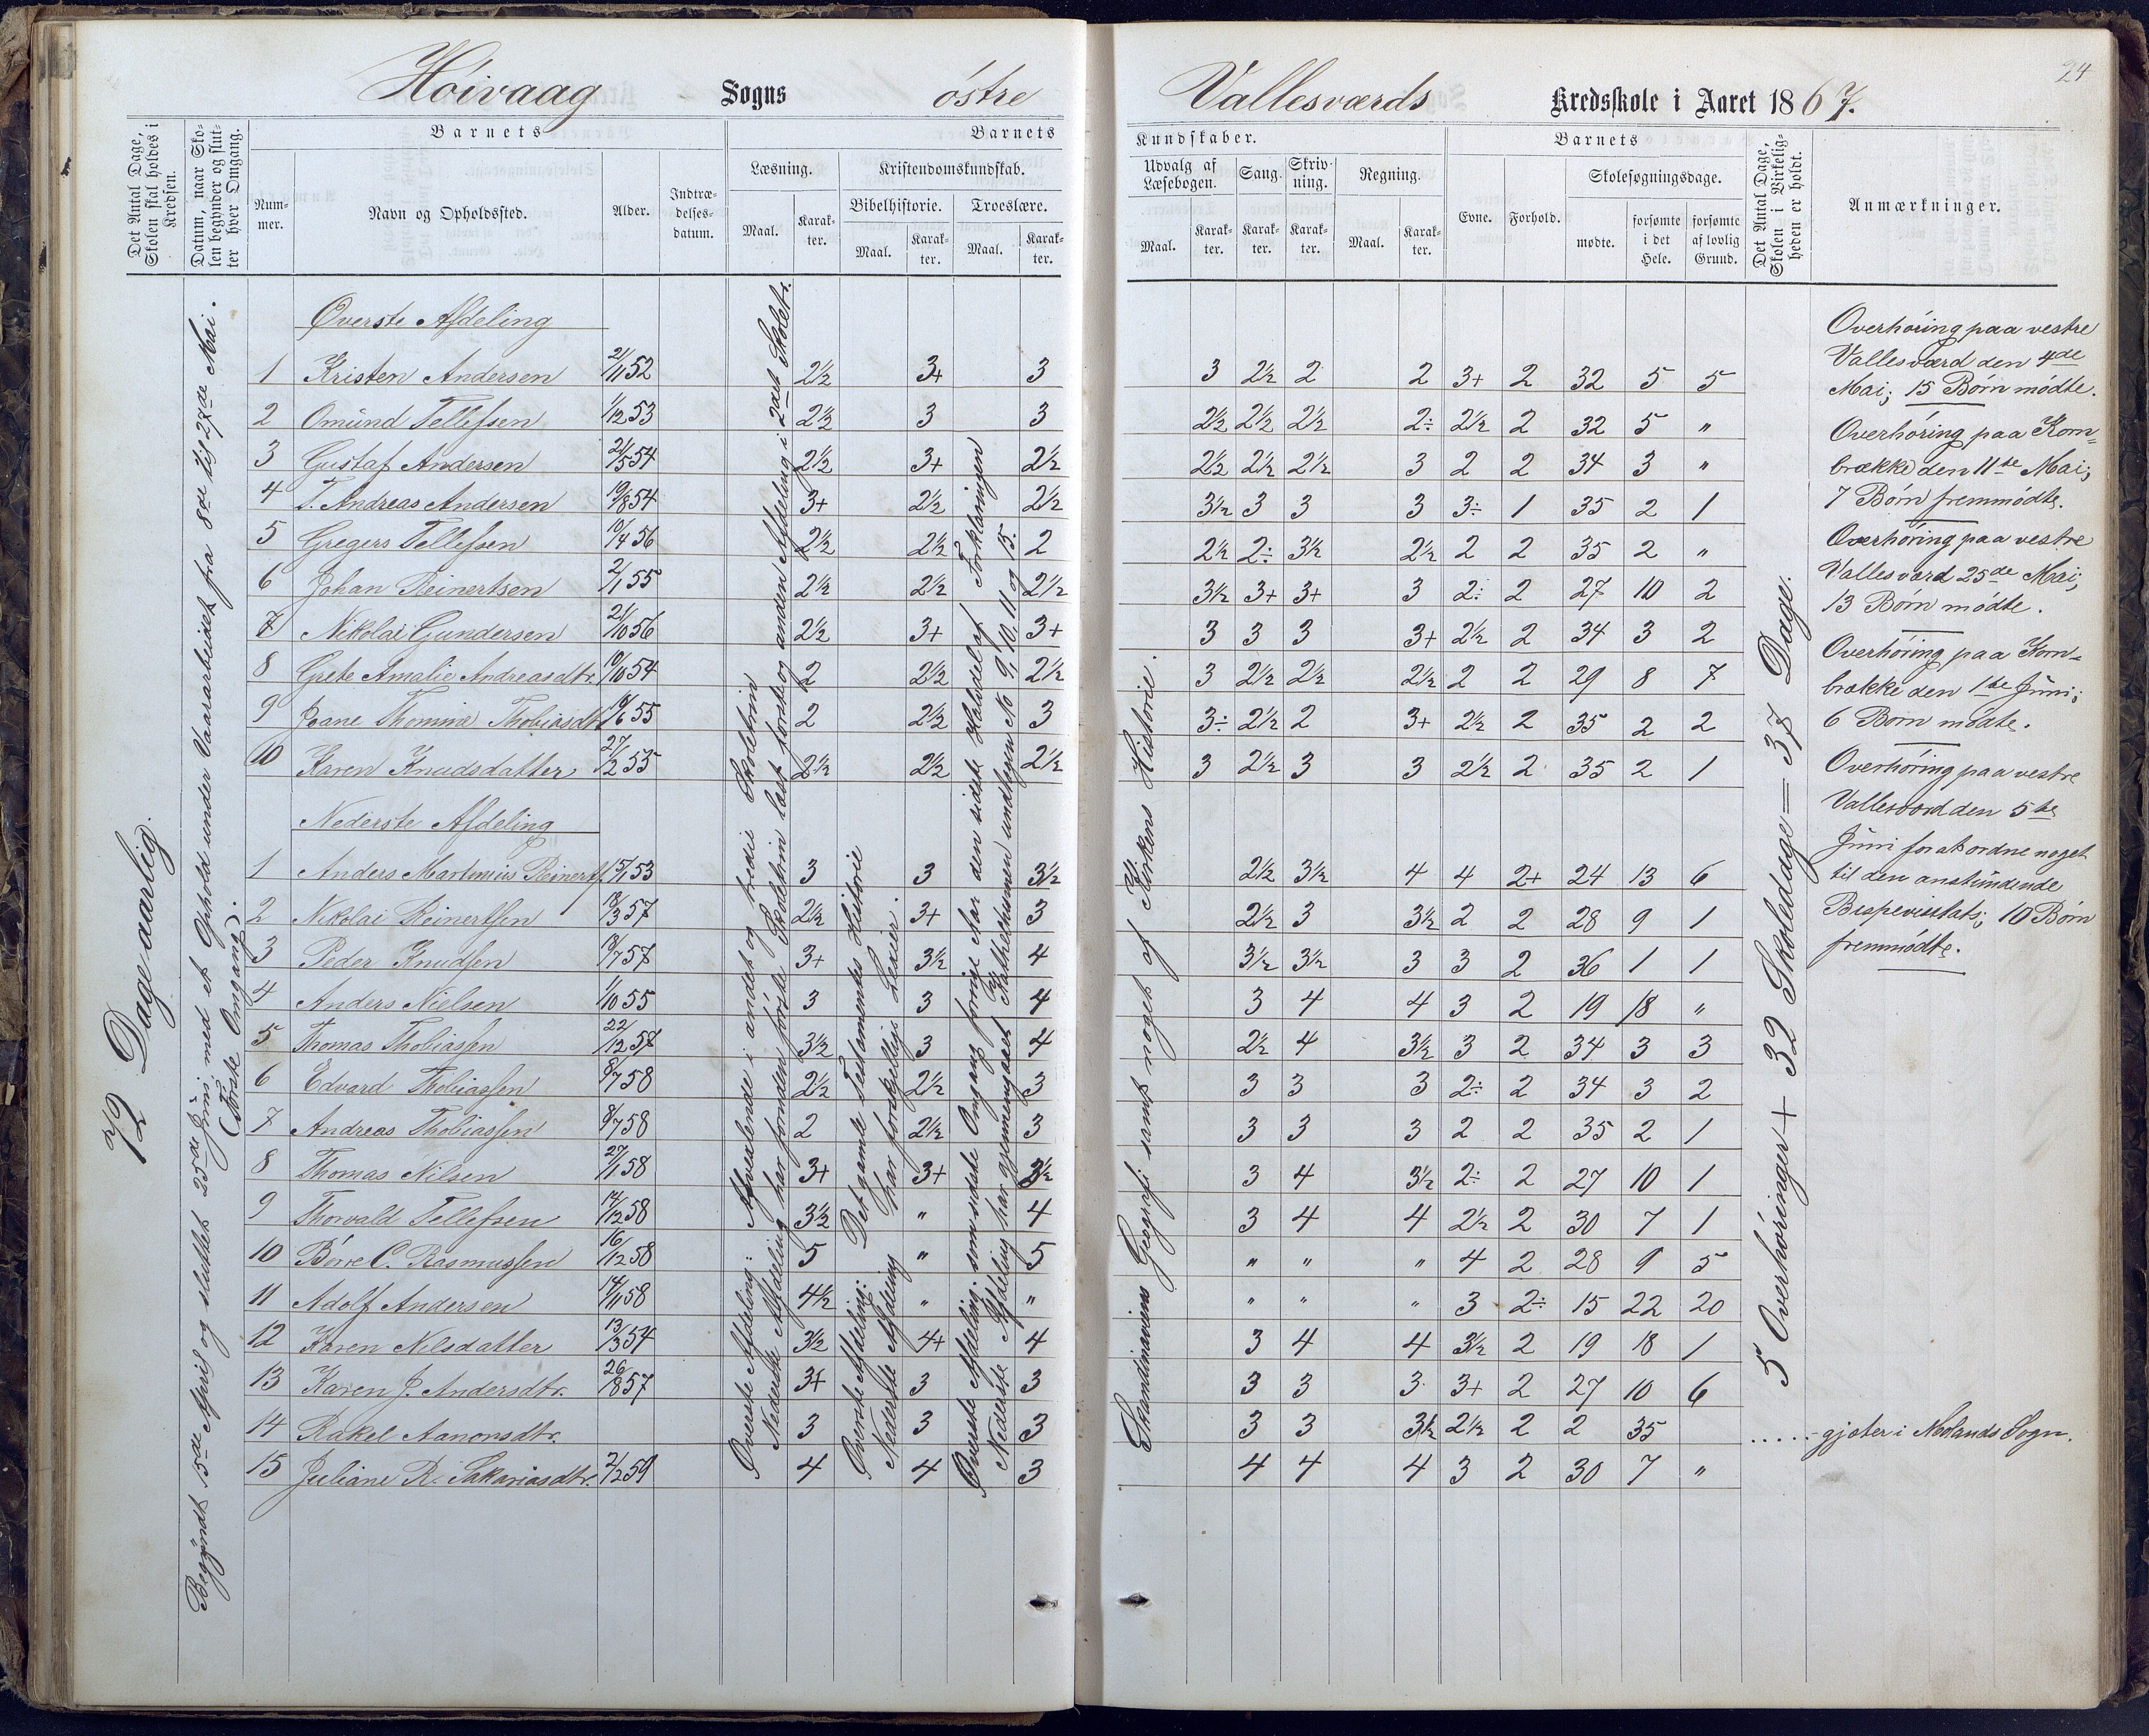 Høivaag Sogns østre Vallesværds Kredsskole i Aaret 1867.
24
Det Antal Dage, Skolen skal holdes i Kredsen.
Datum, naar Skolen begynder og slutter hver Omgang.
Barnets
Nummer.
Navn og Opholdssted.
Alder.
Indtrædelsesdatum.
Barnets
Læsning.
Maal.
Karakter.
Kristendomskundskab.
Bibelhistorie.
Maal.
Karakter.
Troeslære.
Maal.
Karakter.
Kundskaber.
Udvalg af Læsebogen.
Maal.
Karakter.
Sang.
Karakter.
Skrivning.
Karakter.
Regning.
Maal.
Karakter.
Barnets
Evne.
Forhold.
Skolesøgningsdage.
mødte.
forsømte i det Hele.
forsømte af lovlig Grund.
Det Antal Dage, Skolen i Virkeligheden er holdt.
Anmærkninger.
72 Dage aarlig.
Begyndt 15de April og sluttet 25de Juni, med et Ophold under Vaararbeidet fra 8de til 27de Mai.
(Første Omgang).
Øverste Afdeling
1 Kristen Andersen 21/11 52 2½ 3+ 3 3 2½ 2 2 3+ 2 32 5 5
2 Omund Tellefsen 1/12 53 2½ 3 3 2½ 2½ 2½ 2÷ 2½ 2 32 5 "
3 Gustaf Andersen 21/5 54 2½ 3+ 2½ 2½ 2½ 2½ 3 2 2 34 3 "
4 T. Andreas Andersen 19/8 54 3+ 2½ 2½ 3½ 3 3 3 3÷ 1 35 2 1
5 Gregers Tellefsen 10/4 56 2½ 2½ 2 2½ 2÷ 3½ 2½ 2 2 35 2 "
6 Johan Reinertsen 2/1 55 2½ 2½ 2½ 3½ 3+ 3+ 3 2÷ 2 27 10 2
7 Nikolai Gundersen 21/10 56 2½ 3+ 3+ 3 3 3 3+ 2½ 2 34 3 2
8 Grete Amalie Andreasdtr. 10/10 54 2 2½ 2½ 3 2½ 2½ 2½ 2 2 29 8 7
9 Joane Thomine Thobiasdtr 18/6 55 2 2½ 3 3÷ 2½ 2 3+ 2½ 2 35 2 2
10 Karen Knudsdatter 27/2 55 2½ 2½ 2½ 3 2½ 3 3 2½ 2 35 2 1
Nederste Afdeling
1 Anders Martinius Reinertss. 15/1 53 3 3 3½ 2½ 3½ 4 4 2+ 24 13 6
2 Nikolai Reinertsen 18/3 57 2½ 3+ 3 2½ 3 3½ 2 2 28 9 1
3 Peder Knudsen 18/7 57 3+ 3½ 4 3½ 3½ 3 3 2 36 1 1
4 Anders Nielsen 1/10 55 3 3 4 3 4 4 3 2 19 18 "
5 Thomas Thobiassen 22/12 57 3½ 3 4 2½ 4 3½ 3 2 34 3 3
6 Edvard Thobiassen 8/7 58 2½ 2½ 3 3 3 3 2÷ 2 34 3 2
7 Andreas Thobiassen 8/7 58 2 2½ 3 3 3 3 2 2 35 2 1
8 Thomas Nilsen 27/1 58 3+ 3+ 3½ 3 4 3½ 2÷ 2 27 10 1
9 Thorvald Tellefsen 14/12 58 3½ " 4 3 4 4 2½ 2 30 7 1
10 Børre C. Rasmussen 16/12 58 5 " 5 " " " 4 2 28 9 5
11 Adolf Andersen 14/11 58 4½ " " " " " 3 2÷ 15 22 20
12 Karen Nilsdatter 13/3 54 3½ 4+ 4 3 4 4 3½ 2 19 18 1
13 Karen J. Andersdtr. 26/8 57 3+ 3 3 3 3 3 3+ 2 27 10 6
14 Rakel Aanonsdtr. 3 3 3 3 3 3½ 2½ 2 2 35 ..... gjeter i Moelands Sogn.
15 Juliane R. Sakariasdtr. 2/2 59 4 4 3 4 4 4 3 2 30 7 "
Øverste Afdeling: Afvexlende i andet og tredie Skoletrin
Nederste Afdeling har foruden første Skoletrin læst første og anden Afdeling i 2det Skoletr.
Øverste Afdeling: Det gamle Testamentes Historie
Nederste Afdeling har forskjellige Lexier.
Øverste Afdeling: som sidste Omgang forrige Aar den sidste Halvdel af Forklaringen
Nederste Afdeling har gjennemgaaet Kathechismen undtagen No 9, 10, 11 og 15.
Skandinaviens Geografi samt noget af Kirkens Historie.
5 Overhøringer + 32 Skoledage = 37 Dage.
Overhøring paa vestre
Vallesværd den 4de
Mai; 15 Børn mødte.
Overhøring paa Korn-
brække den 11te Mai;
7 Børn fremmødte.
Overhøring paa vestre
Vallesværd 25de Mai;
13 Børn mødte.
Overhøring paa Korn-
brække den 1ste Juni;
6 Børn mødte.
Overhøring paa vestre
Vallesværd den 5te
Juni for at ordne noget
til den anstundende
Bispevisitats; 10 Børn
fremmødte.